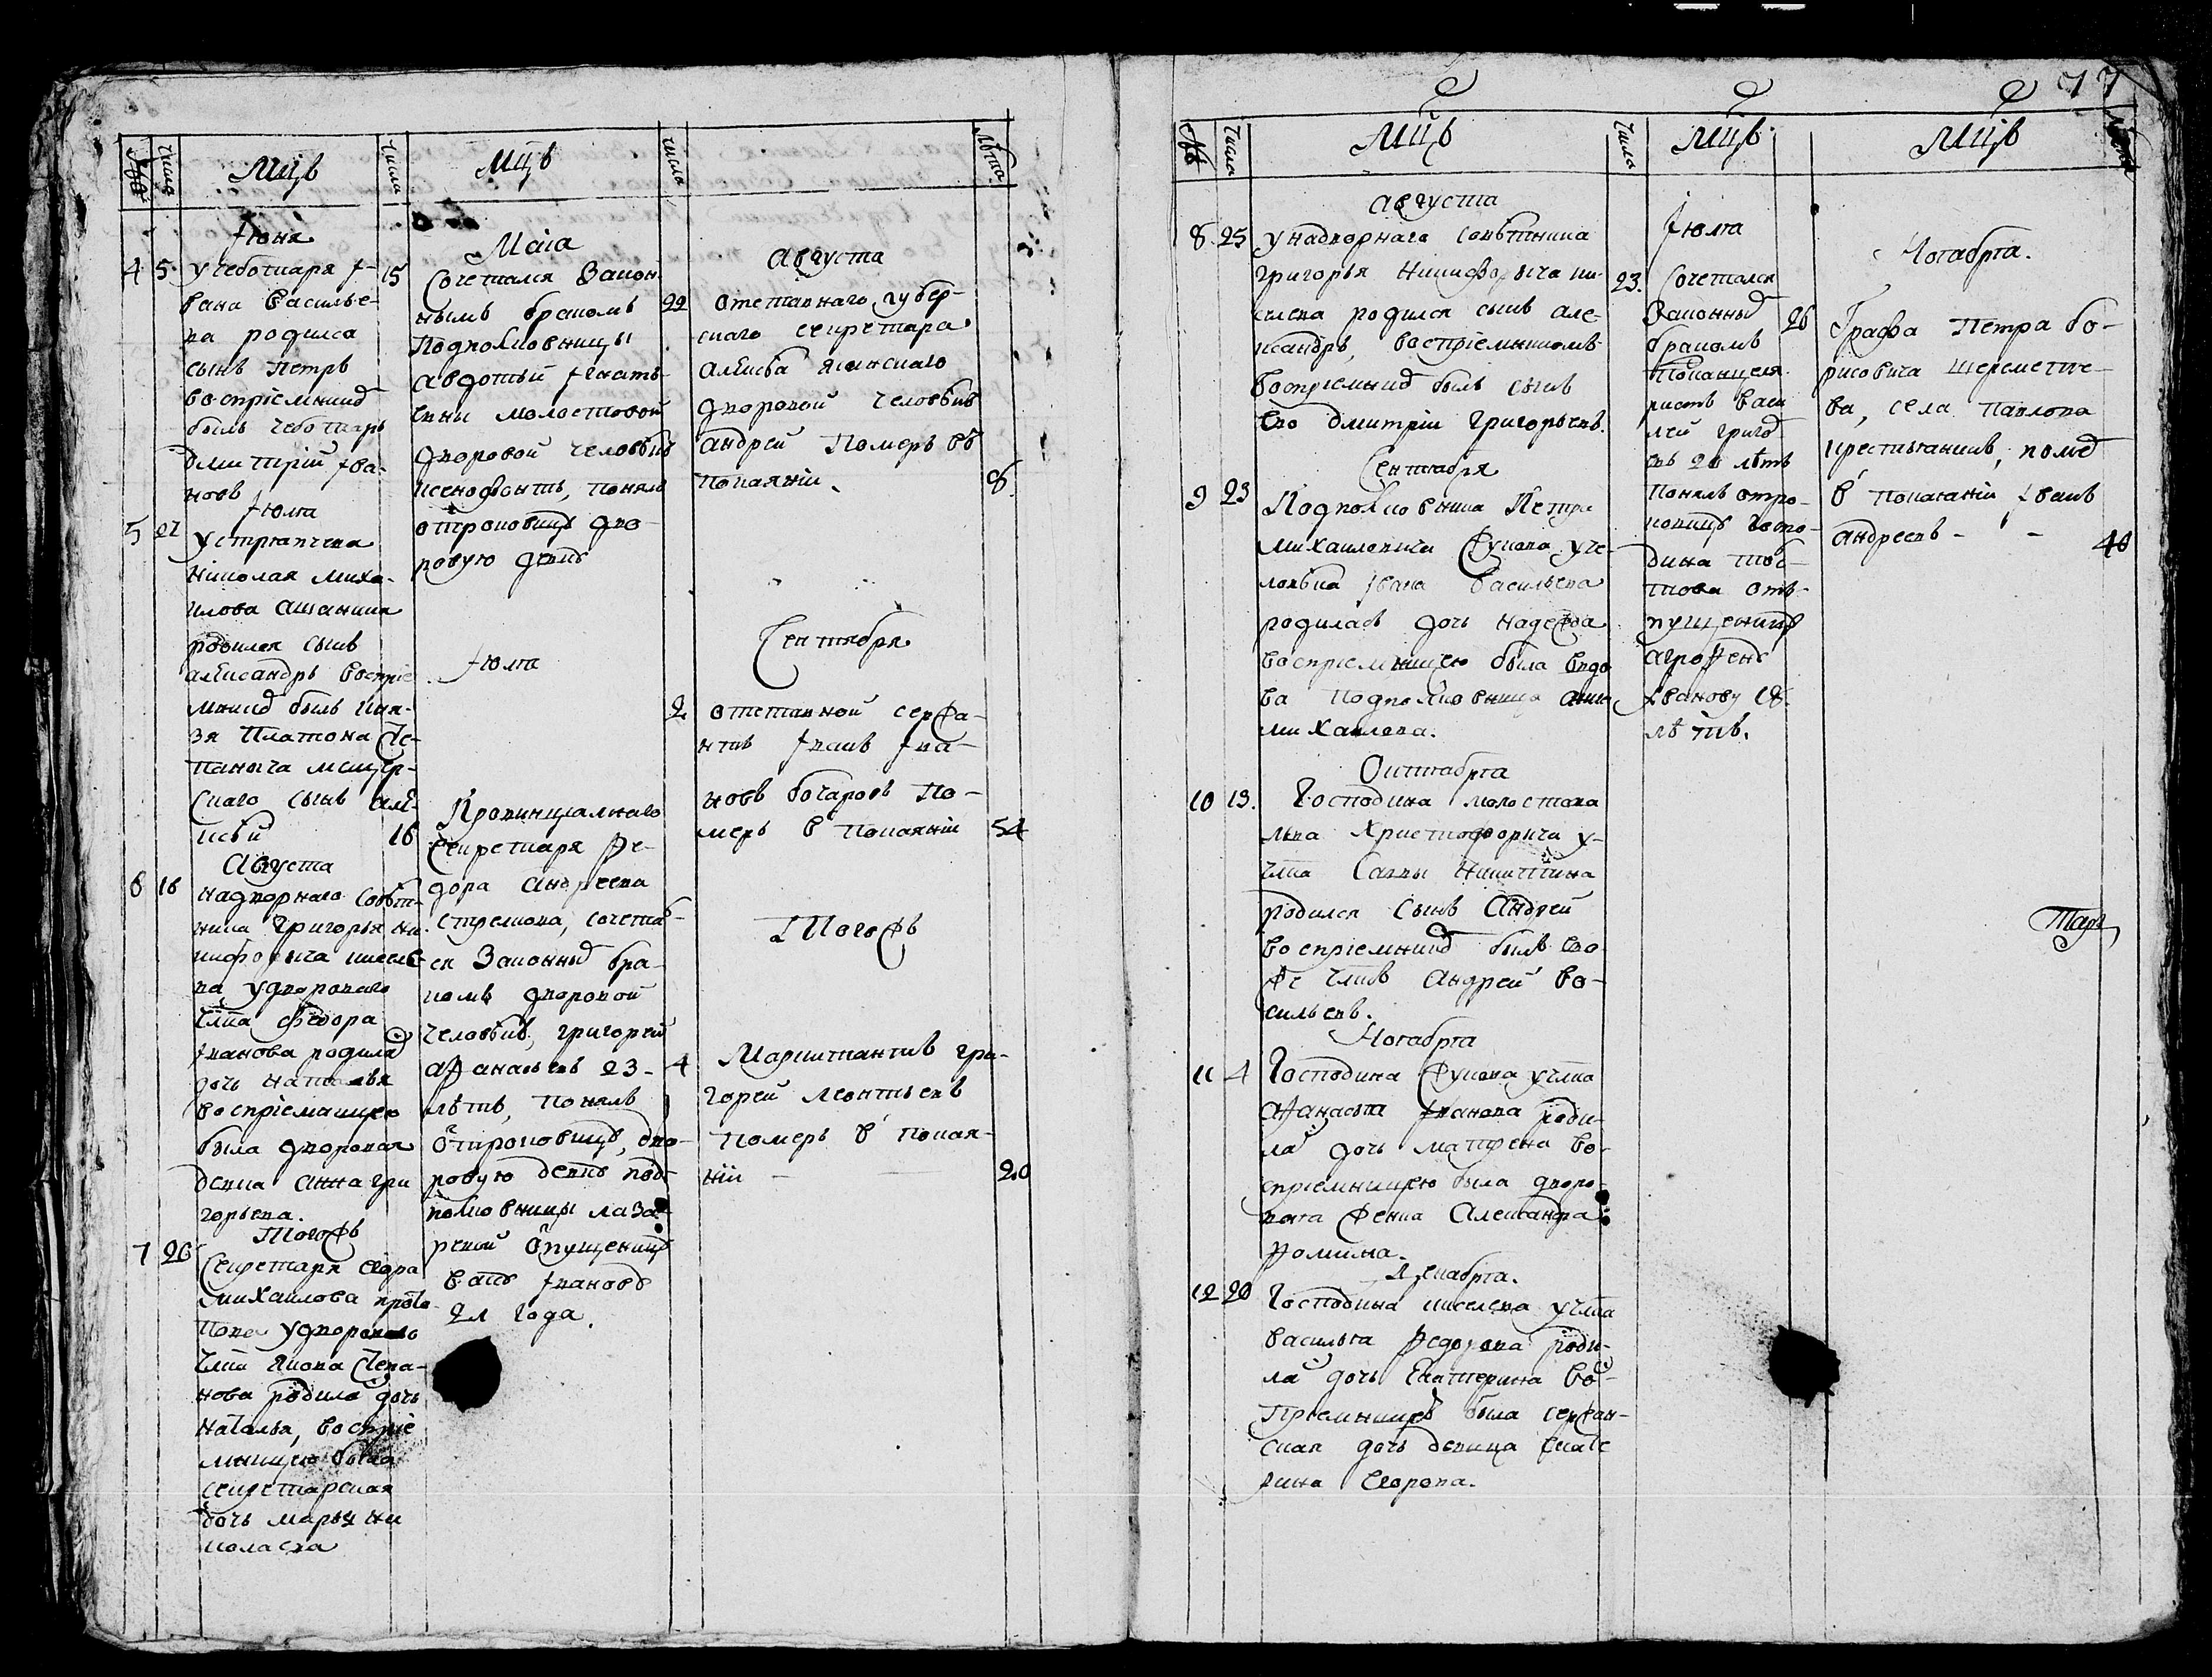 77
№
число
Мцъ
число
Мцъ
число
Лѣта
Iюня
4 5 у чеботаря I-
вана Василье-
ва родился
сынъ Петръ
воспрiемник
былъ чеботарь
Дмитрiй Ива-
новъ
Iюля
5 27 у стряпчева
Николая Миха-
илова Ашанина
родился сынъ
алеѯандръ воспрiе
мник былъ Кня-
зя Платона Сте-
паныча мещер-
скаго сынъ але-
ксѣй
Августа
6 16 надворнаго совѣт-
ника Григорья Ни-
кифорыча киселе-
ва у двороваго
члка Федора
Иванова родилас
дочь Наталья
воспрiемницею
была дворовая
девка Анна гри
горьева.
Тогожъ
7 26 Секретаря Егора
Михаилова прото
попа у двороваго
члка Якова Степа-
нова родилас дочь
Наталья, воспрiе
мницею была
секретарская
дочь марья ни
колаева
Маiа
15 Сочетался Закон-
нымъ бракомъ
Подполковницы
авдотьи Игнать-
евны молостовой
дворовой человѣкъ
ксенофонтъ, понялъ
отроковицу дво-
ровую девку
Iюля
16 Провинциалнаго
Секретаря Фе-
дора андреева
Стрелкова, сочетал-
ся Законным бра-
комъ дворовой
человѣкъ, григорей
афанасьевъ 23-
лѣтъ, понялъ
отроковицу, дво-
ровую девку под-
полковницы лаза-
ревой отпущеннную
Ивановъ
21 года.
Августа
22 отставнаго губер-
скаго секретаря
алеѯѣя яковскаго
дворовой человѣкъ
андрей Померъ въ
покаянiи. 8.
Сентября
2 отставной сержа-
нтъ Иванъ Ива-
новъ бочаровъ По-
меръ в покаянiи 54
Тогожъ
4 Маркитантъ гри-
горей леонтьевъ
померъ в покая-
нiи - 20
№
число
Мцъ
число
Мцъ
Мцъ
августа
8. 25 у надворнаго совѣтника
григорья Никифорыча ки-
селева родился сынъ але-
ксандръ, воспрiемникомъ
воспрiемник былъ сынъ
Ево дмитрiй григорьевъ.
Сентября
9 23 Подполковника Петра
Михаиловича Фукова у че-
ловѣка Ивана Васильева
родилась дочь надежда
воспрiемницею была вдо
ва подполковница анна
михаилова.
Октября
10 13. Господина молостова
льва Христофорыча у-
члка Савы Никитина
родился сынъ Андрей
воспрiемник былъ ево
же члкъ Андрей Ва-
сильевъ.
Ноября
11 4 Господина Фукова у члка
афанасья Иванова роди-
лас дочь матрена во-
спрiемницею была дворо-
вая женка Алеѯандра
Фомина.
Декабря.
12 20 Господина киселева у члка
василья Федорова роди-
лас дочь Екатерина вос-
прiемницею была сержан-
ская дочь девица Екате
рина Егорова.
Iюля
23. Сочетался
Законным
бракомъ
Подканцеля
ристъ васи
лей григор
евъ 20 лѣтъ
понялъ отро-
ковицу госпо-
дина
отъ-
пущенную
аграфену
Иванову 18.
лѣтъ.
Ноября.
26 Графа Петра бо-
рисовича шеремете-
ва, села павлова
крестьянинъ, помер
в покаянiи Иванъ
андреевъ - - 40